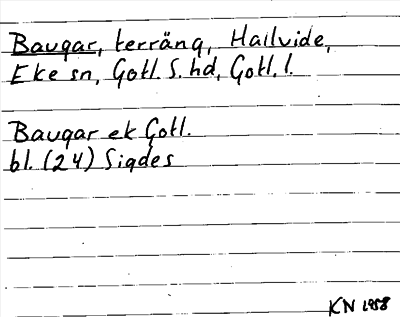 Baugar, terräng, Hallvide,
Eke sn, Gotl. S. hd, Gotl. l.
Baugar ek Gotl.
bl. (24) Sigdes
KN 1958